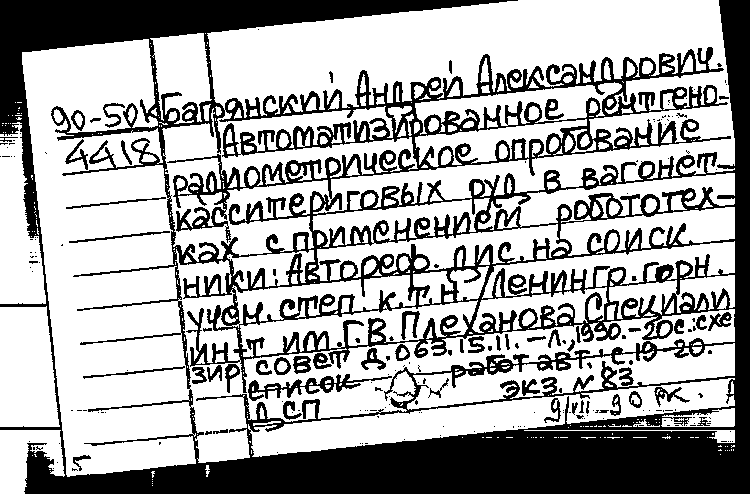 90-50К Багрянский, Андрей Александрович.
4418 Автоматизированное рентгено-
радиометрическое опробование
касситеритовых руд в вагонет-
ках с применением робототех-
ники: Автореф. дис. на соиск.
учен. степ. к.т.н. /Ленингр. горн.
ин-т им. Г.В. Плеханова Специали
зир совет Д.063.15.11. -Л., 1990.-20с.:схе
список работ авт.: с.19-20.
ДСП экз. № 83.
9/VII-90 РК.
5